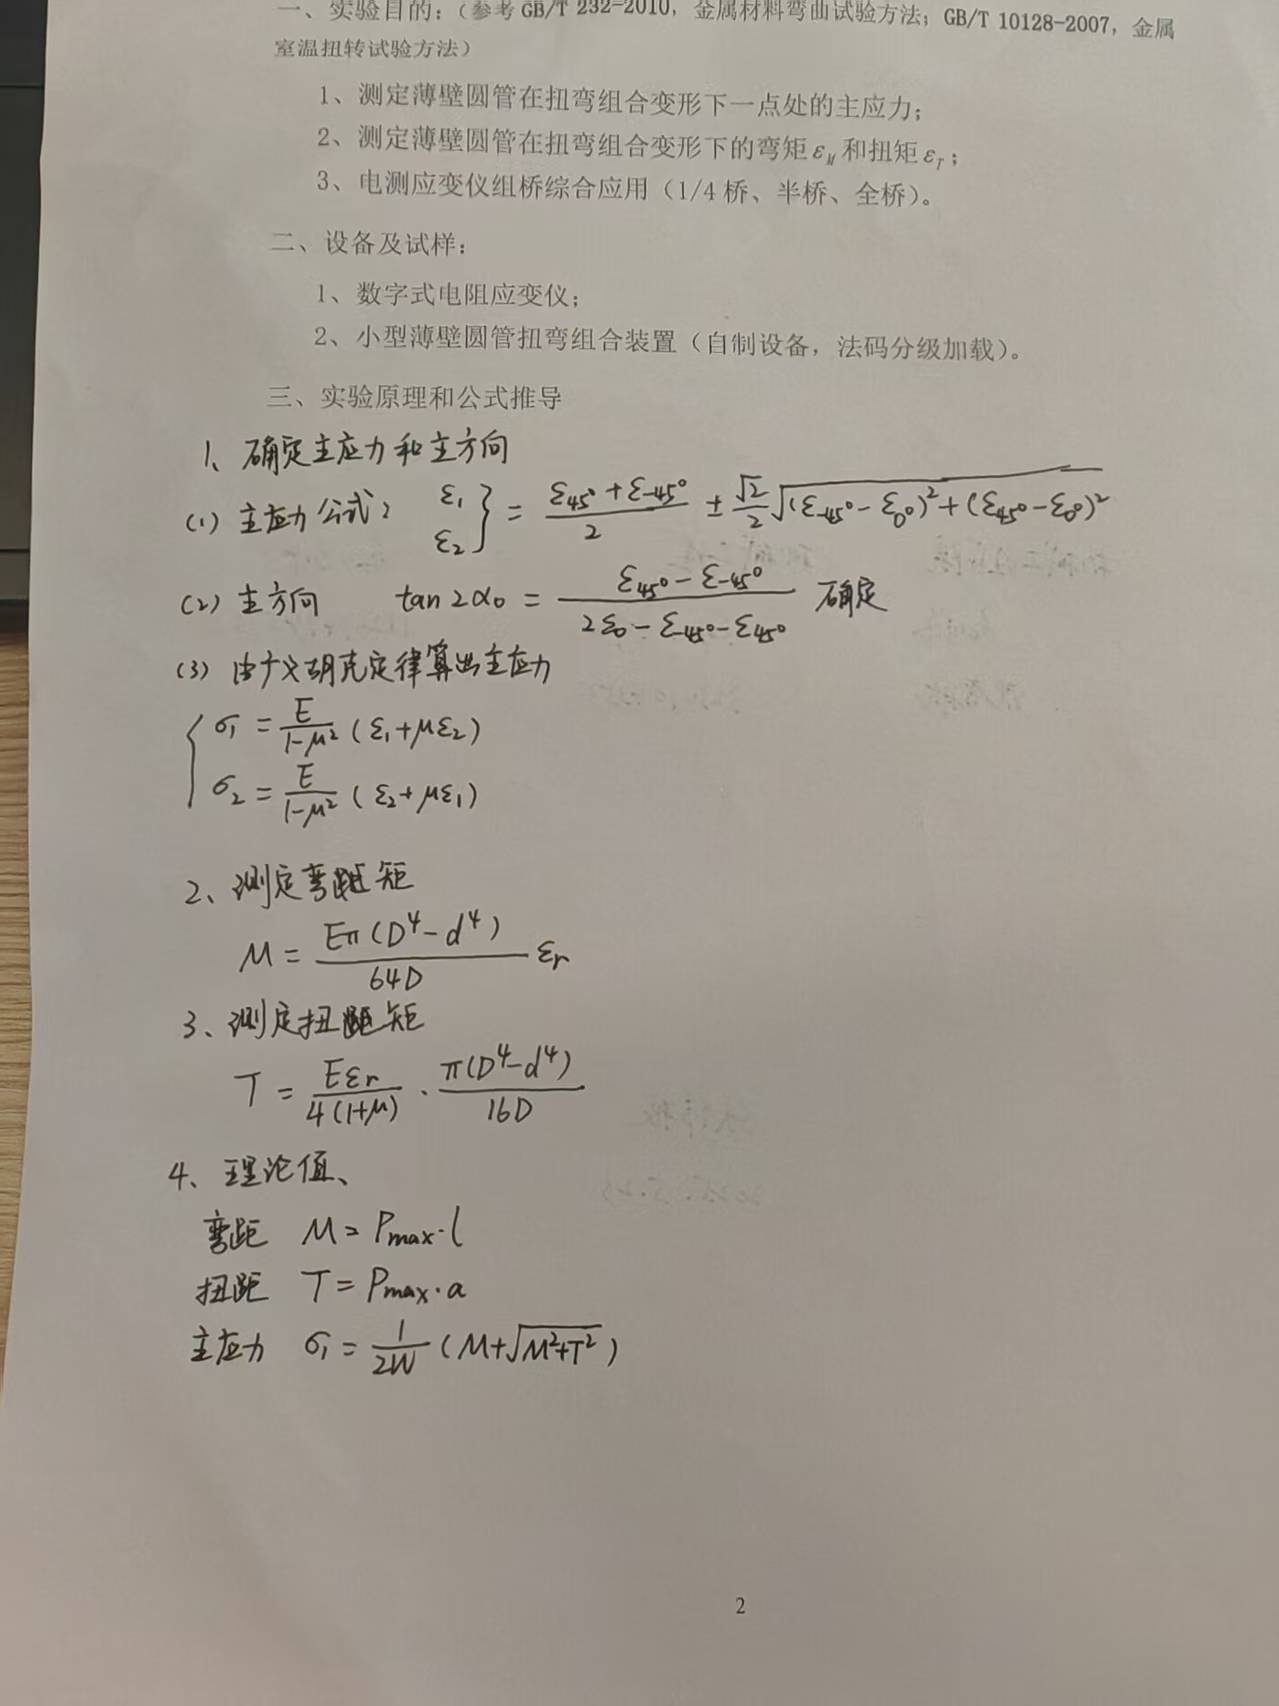 一、实验目的：（参考 GB/T 232-2010，金属材料弯曲试验方法；GB/T 10128-2007，金属
室温扭转试验方法）
1、测定薄壁圆管在扭弯组合变形下一点处的主应力；
2、测定薄壁圆管在扭弯组合变形下的弯矩 ε_M 和扭矩 ε_T；
3、电测应变仪组桥综合应用（1/4 桥、半桥、全桥）。
二、设备及试样：
1、数字式电阻应变仪；
2、小型薄壁圆管扭弯组合装置（自制设备，法码分级加载）。
三、实验原理和公式推导
1、确定主应力和主方向
(1) 主应力公式： ε₁ ε₂ } = (ε45° + ε-45°)/2 ± √2/2 √((ε-45° - ε0°)² + (ε45° - ε0°)²)
(2) 主方向 tan 2α₀ = (ε45° - ε-45°)/(2ε0 - ε-45° - ε45°) 确定
(3) 由广义胡克定律算出主应力
{ σ₁ = E/(1-μ²) (ε₁+με₂)
σ₂ = E/(1-μ²) (ε₂+με₁)
2、测定弯矩
M = Eπ(D⁴-d⁴)/64D εr
3、测定扭矩
T = Eεr/4(1+μ) · π(D⁴-d⁴)/16D
4、理论值、
弯距 M = Pmax·l
扭距 T = Pmax·a
主应力 σ₁ = 1/2W (M+√(M²+T²))
2